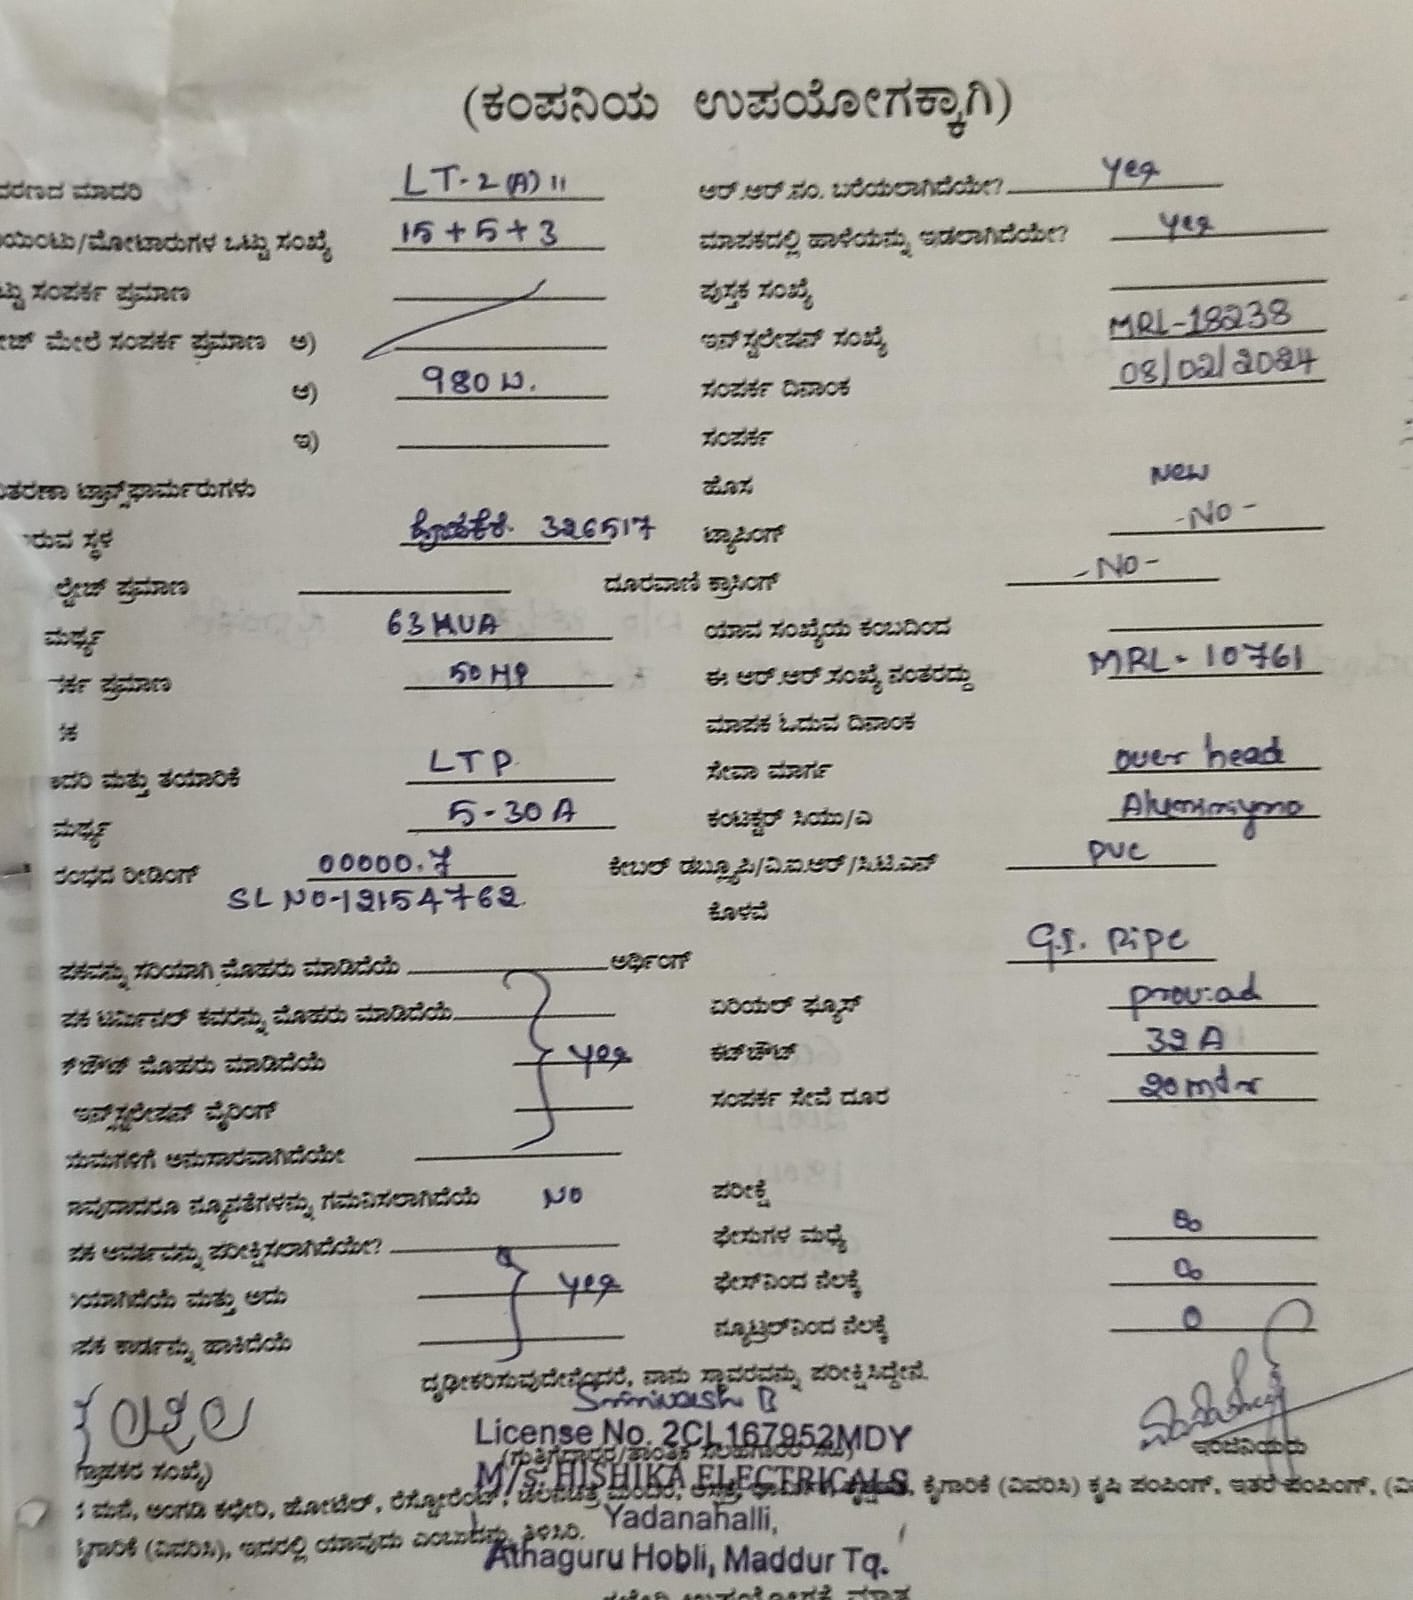 (ಕಂಪನಿಯ ಉಪಯೋಗಕ್ಕಾಗಿ)
ವರಣದ ಮಾದರಿ LT-2(A)ii ಆರ್.ಆರ್.ನಂ. ಬರೆಯಲಾಗಿದೆಯೇ? Yes
ಯಿಂಟು/ಮೋಟಾರುಗಳ ಒಟ್ಟು ಸಂಖ್ಯೆ 15+5+3 ಮಾಪಕದಲ್ಲಿ ಹಾಳೆಯನ್ನು ಇಡಲಾಗಿದೆಯೇ? Yes
ಟ್ಟು ಸಂಪರ್ಕ ಪ್ರಮಾಣ ಪುಸ್ತಕ ಸಂಖ್ಯೆ
ೇಜ್ ಮೇಲೆ ಸಂಪರ್ಕ ಪ್ರಮಾಣ ಅ) ಇನ್‌ಸ್ಟಲೇಷನ್ ಸಂಖ್ಯೆ MRL-18238
ಆ) 980 W. ಸಂಪರ್ಕ ದಿನಾಂಕ 08/02/2024
ಇ) ಸಂಪರ್ಕ
ತರಣಾ ಟ್ರಾನ್ಸ್‌ಫಾರ್ಮರುಗಳು ಹೊಸ New
ರುವ ಸ್ಥಳ 326517 ಟ್ಯಾಪಿಂಗ್ -No-
ಲ್ಟೇಜ್ ಪ್ರಮಾಣ ದೂರವಾಣಿ ಕ್ರಾಸಿಂಗ್ -No-
ಮರ್ಥ್ಯ 63 KVA ಯಾವ ಸಂಖ್ಯೆಯ ಕಂಬದಿಂದ
ರ್ಕ ಪ್ರಮಾಣ 50 HP ಈ ಆರ್.ಆರ್.ಸಂಖ್ಯೆ ನಂತರದ್ದು MRL-10761
ಕ ಮಾಪಕ ಓದುವ ದಿನಾಂಕ
ದರಿ ಮತ್ತು ತಯಾರಿಕೆ LTP ಸೇವಾ ಮಾರ್ಗ over head
ಮರ್ಥ್ಯ 5-30A ಕಂಟಕ್ಟರ್ ಸಿಯು/ಎ
ರಂಭದ ರೀಡಿಂಗ್ 00000.7 ಕೇಬಲ್ ಡಬ್ಲ್ಯೂಪಿ/ವಿ.ಐ.ಆರ್/ಸಿ.ಟಿ.ಎನ್ PVC
SL NO-12154762 ಕೊಳವೆ
ಪಕವನ್ನು ಸರಿಯಾಗಿ ಮೊಹರು ಮಾಡಿದೆಯೆ ಅರ್ಥಿಂಗ್ G.I. pipe
ಪಕ ಟರ್ಮಿನಲ್ ಕವರನ್ನು ಮೊಹರು ಮಾಡಿದೆಯೆ ಏರಿಯಲ್ ಫ್ಯೂಸ್
ಚೌಟ್ ಮೊಹರು ಮಾಡಿದೆಯೆ Yes ಕಟ್‌ಚೌಟ್ 32 A
ಇನ್‌ಸ್ಟಲೇಷನ್ ವೈರಿಂಗ್ ಸಂಪರ್ಕ ಸೇವೆ ದೂರ
ಯಮಗಳಿಗೆ ಅನುಸಾರವಾಗಿದೆಯೇ
ಾವುದಾದರೂ ನ್ಯೂನತೆಗಳನ್ನು ಗಮನಿಸಲಾಗಿದೆಯೆ NO ಪರೀಕ್ಷೆ
ಪಕ ಆವರ್ತವನ್ನು ಪರೀಕ್ಷಿಸಲಾಗಿದೆಯೇ? ಫೇಸುಗಳ ಮಧ್ಯೆ ∞
ಯಾಗಿದೆಯೆ ಮತ್ತು ಅದು Yes ಫೇಸ್‌ನಿಂದ ನೆಲಕ್ಕೆ ∞
ಪಕ ಕಾರ್ಡನ್ನು ಹಾಕಿದೆಯೆ ನ್ಯೂಟ್ರಲ್‌ನಿಂದ ನೆಲಕ್ಕೆ 0
ದೃಢೀಕರಿಸುವುದೇನೆಂದರೆ, ನಾನು ಸ್ಥಾವರವನ್ನು ಪರೀಕ್ಷಿಸಿದ್ದೇನೆ.
License No. 2CL167952MDY
(ಗುತ್ತಿಗೆದಾರರ/ತಾಂತ್ರಿಕ ಸಲಹೆಗಾರರ ಸಹಿ) ಇಂಜಿನಿಯರು
ಗ್ರಾಹಕರ ಸಂಖ್ಯೆ)
M/s. HISHIKA ELECTRICALS
ಮನೆ, ಅಂಗಡಿ ಕಛೇರಿ, ಹೋಟೆಲ್, ರೆಸ್ಟೋರೆಂಟ್, ಕೈಗಾರಿಕೆ (ವಿವರಿಸಿ) ಕೃಷಿ ಪಂಪಿಂಗ್, ಇತರೆ ಪಂಪಿಂಗ್,
Yadanahalli,
ೈಗಾರಿಕೆ (ವಿವರಿಸಿ), ಇದರಲ್ಲಿ ಯಾವುದು ಎಂಬುದನ್ನು ತಿಳಿಸಿರಿ.
Athaguru Hobli, Maddur Tq.